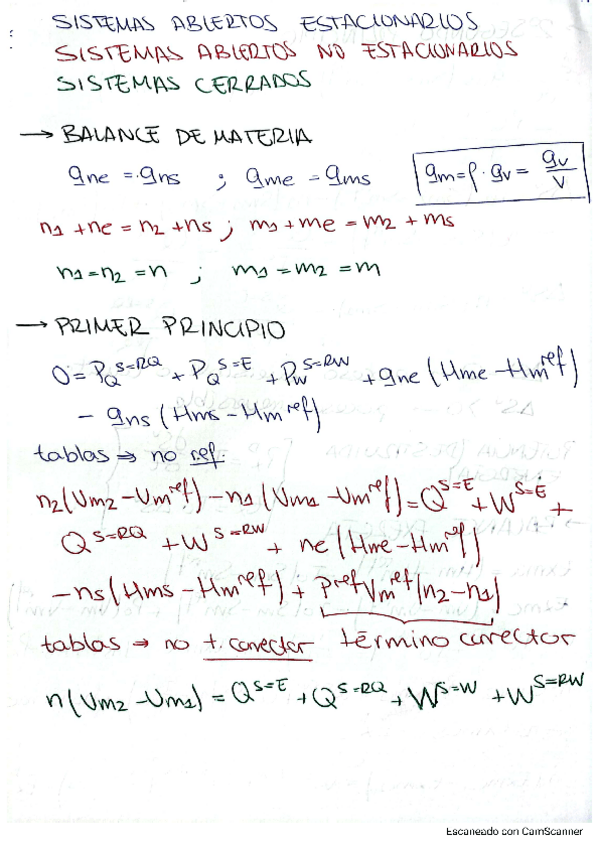 SISTEMAS ABIERTOS ESTACIONARIOS
SISTEMAS ABIERTOS NO ESTACIONARIOS
SISTEMAS CERRADOS
→ BALANCE DE MATERIA
qne = qns ; qme = qms
qm = ρ · qv = qv/V
n1 + ne = n2 + ns ; m1 + me = m2 + ms
n1 = n2 = n ; m1 = m2 = m
→ PRIMER PRINCIPIO
0 = PQ^S=RQ + PQ^S=E + PW^S=RW + qne (Hme - Hm^ref)
- qns (Hms - Hm^ref)
tablas → no ref.
n2(Um2 - Um^ref) - n1(Um1 - Um^ref) = Q^S=E + W^S=E +
Q^S=RQ + W^S=RW + ne (Hme - Hm^ref)
- ns (Hms - Hm^ref) + P^ref Vm^ref (n2 - n1)
tablas → no t. corrector término corrector
n(Um2 - Um1) = Q^S=E + Q^S=RQ + W^S=W + W^S=RW
Escaneado con CamScanner